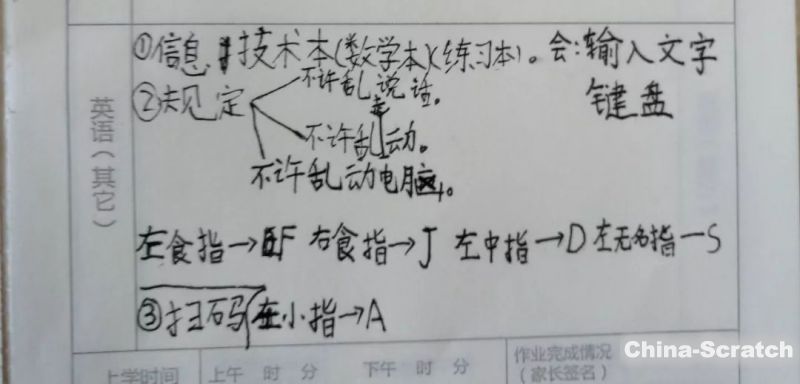 ①信息技术本(数学本)(练习本)。会:输入文字
键盘
英语(其它)
②规定
不许乱说话。
不许乱走动。
不许乱动电脑。
左食指→F 右食指→J 左中指→D 左无名指—S
③扫码 左小指→A
上学时间 上午 时 分 下午 时 分 作业完成情况
(家长签名)
China-Scratch